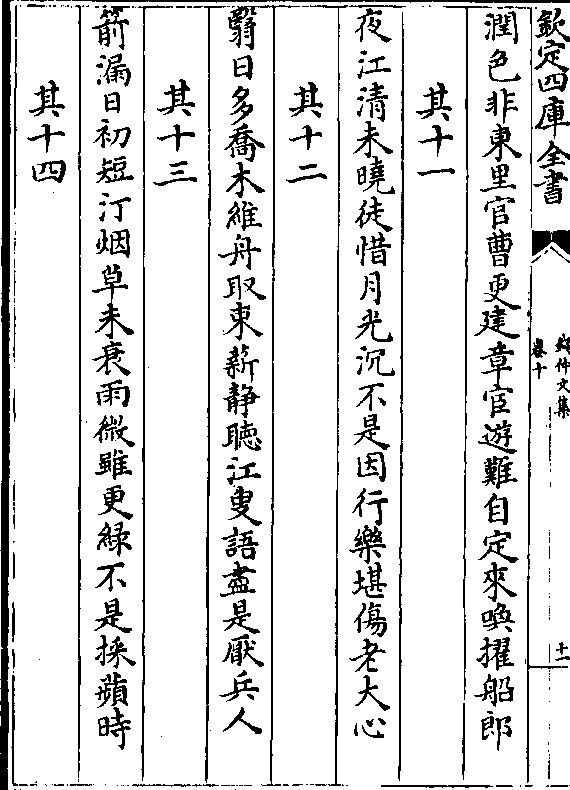 欽定四庫全書
卷十
文集
十一
潤色非東里官曹更建章宦遊難自定來喚擢船郎
其十一
夜江清未曉徒惜月光沉不是因行樂堪傷老大心
其十二
翳日多喬木維舟取束薪静聽江叟語盡是厭兵人
其十三
箭漏日初短汀烟草未衰雨微雖更綠不是採蘋時
其十四